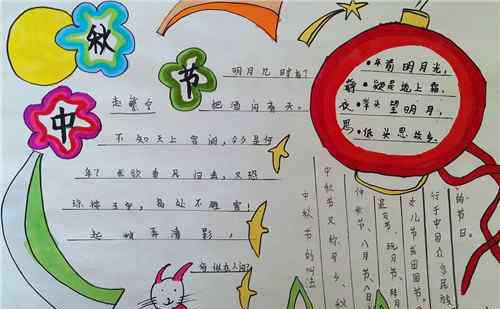 中秋节
明月几时有?
把酒问青天。
不知天上宫阙,今夕是何
年?我欲乘风归去,又恐
琼楼玉宇,高处不胜寒!
起舞弄清影,
何似在人间?
静夜思
前明月光,
疑是地上霜。
举头望明月,
低头思故乡。
中秋节的叫法
中秋节又称月夕、秋
仲秋节、八月节、八月
追月节、玩月节、拜月
女儿节或团圆节,
行于中国众多民族
的节日。